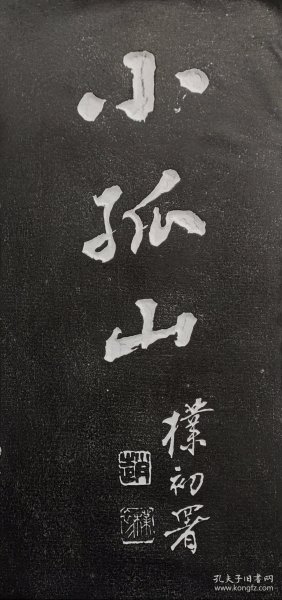 小孤山
樸初署
趙
樸初
孔夫子旧书网
www.kongfz.com